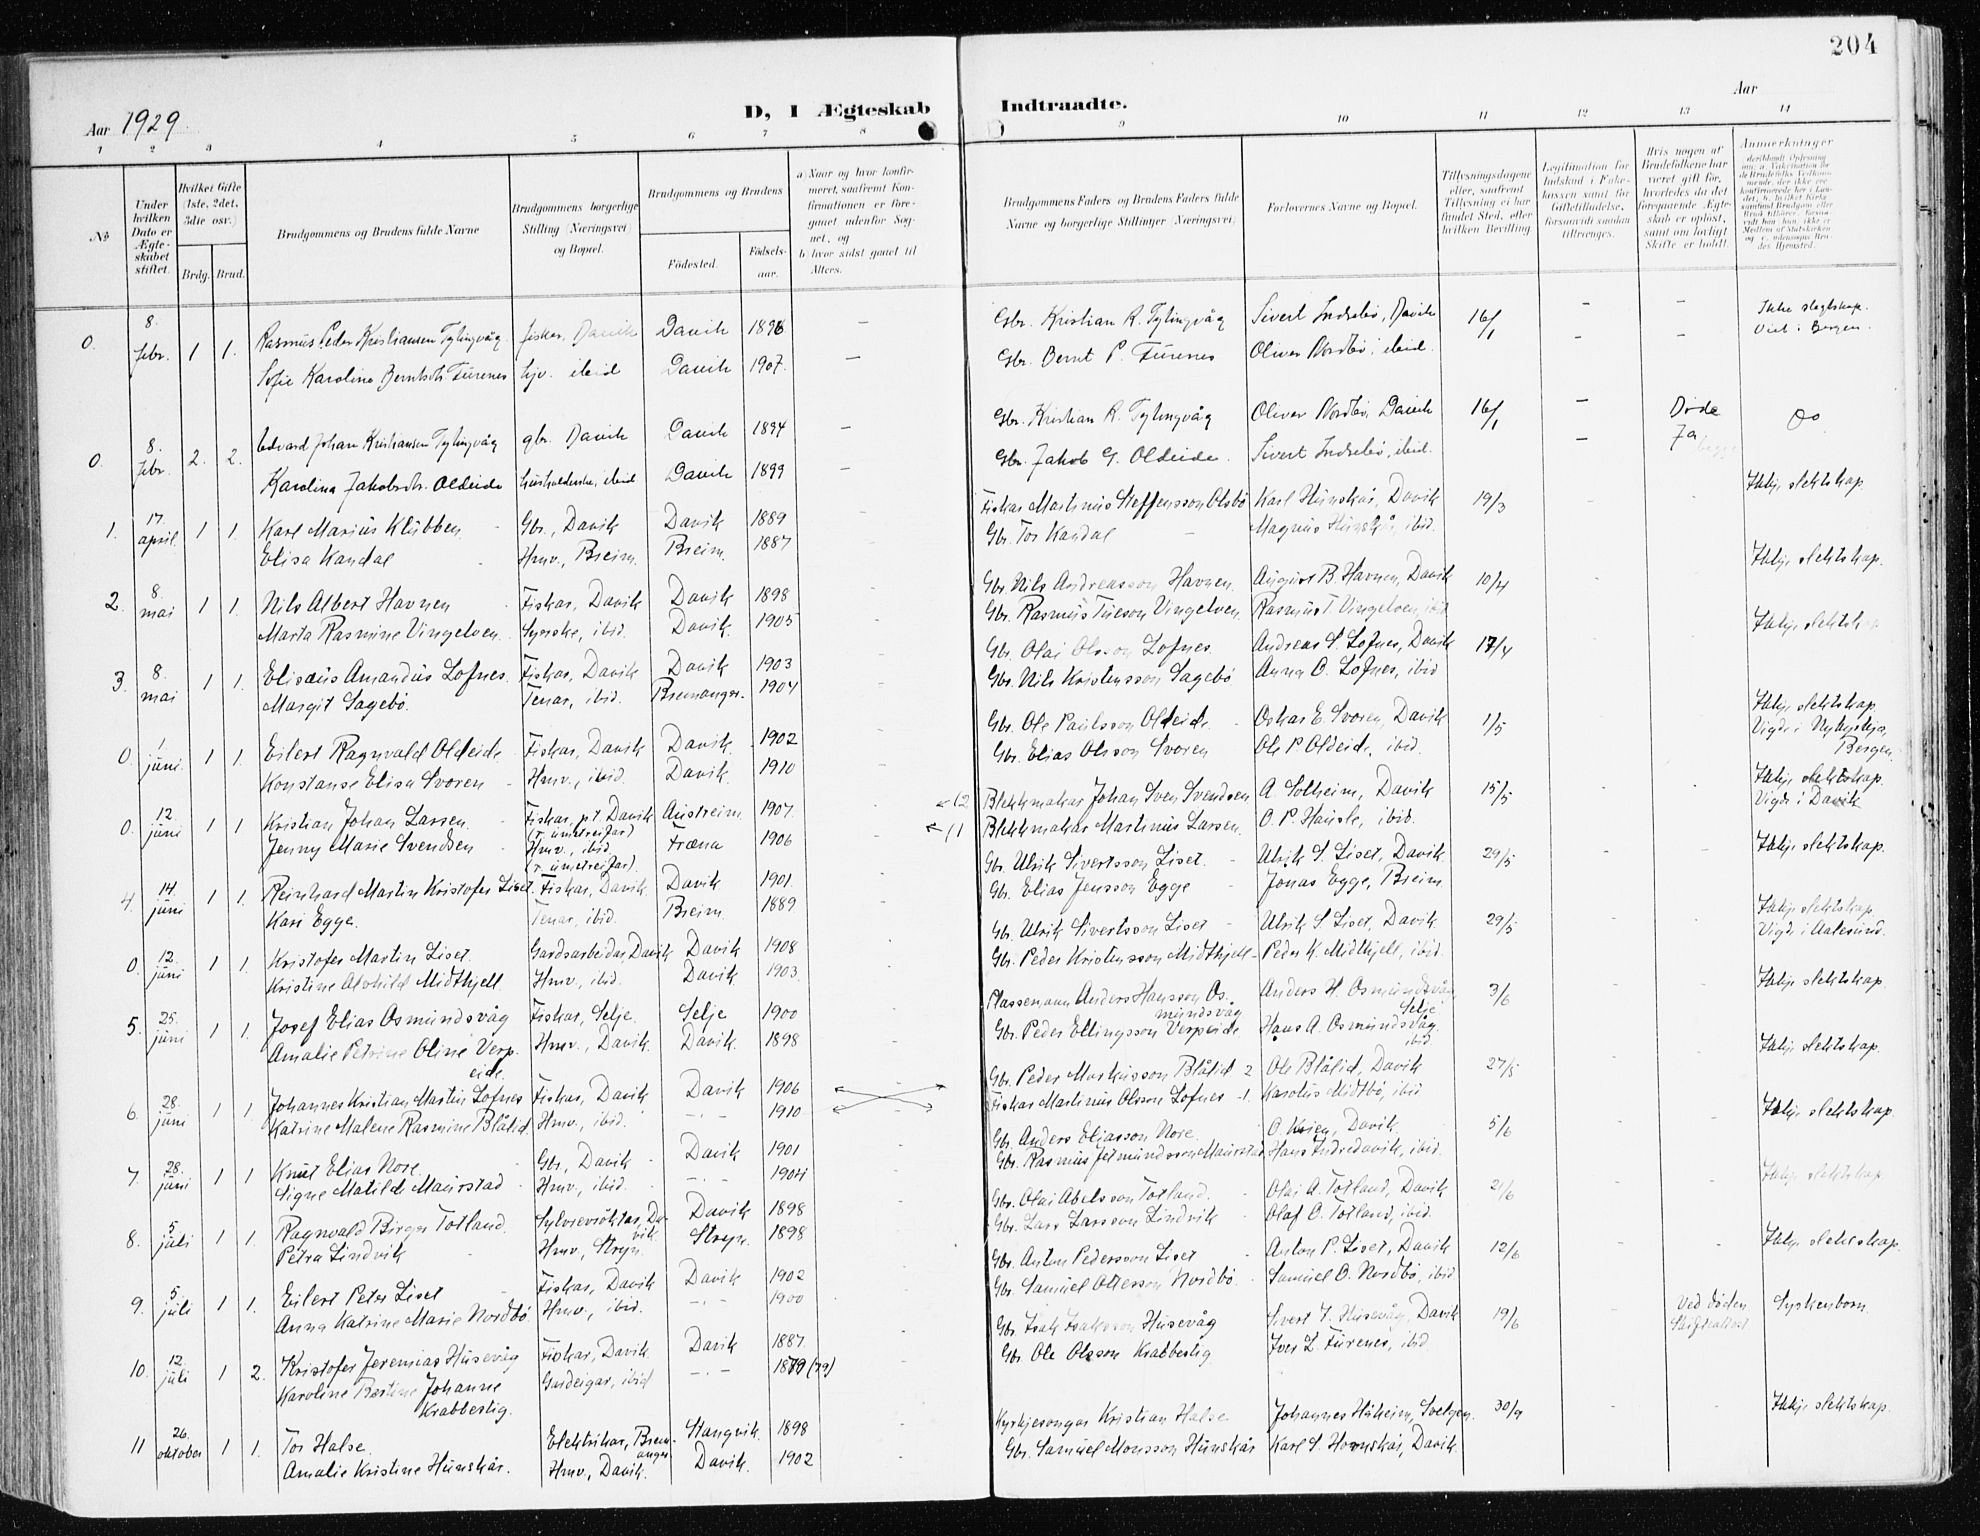 204
Aar 1929
D, I Ægteskab Indtraadte.
Aar
1 2 3 4 5 6 7 8 9 10 11 12 13 14
№
Under hvilken Dato er Ægteskabet stiftet.
Hvilket Gifte (1ste, 2det, 3die osv.)
Brdg. Brud.
Brudgommens og Brudens fulde Navne
Brudgommens borgerlige Stilling (Næringsvei) og Bopæl.
Brudgommens og Brudens
Fødested. Fødselsaar.
a) Naar og hvor konfirmeret, saafremt Konfirmationen er foregaaet udenfor Sognet, og
b) hvor sidst gaaet til Alters.
Brudgommens Faders og Brudens Faders fulde Navne og borgerlige Stillinger (Næringsvei)
Forlovernes Navne og Bopæl.
Tillysningsdagene eller, saafremt Tillysning ei har fundet Sted, efter hvilken Bevilling
Legitimation for Indskud i Enkekassen samt for Giftetilladelse, forsaavidt saadan tiltrænges.
Hvis nogen af Brudefolkene har været gift før, hvorledes da det foregaaende Ægteskab er opløst, samt om lovligt Skifte er holdt.
Anmerkninger
0. 8. febr. 1 1. Rasmus Peder Kristiansen Tytingvåg fisker, Davik Davik 1898 — Gbr. Kristian R. Tytingvåg Sivert Indrebø, Davik 16/1 — — Ikke slegtskap.
Viet i Bergen.
Sofie Karoline Berntsdtr. Furenes hjv. ibid Davik 1907. — Gbr. Bernt P. Furenes Oliver Nordbø, ibid. —
0. 8. febr. 2. 2. Edvard Johan Kristiansen Tytingvåg gbr. Davik Davik 1894 — Gbr. Kristian R. Tytingvåg Oliver Nordbø, Davik 16/1 — Døde
Karolina Jakobsdtr. Oldeide husholderske, ibid Davik 1899 — Gbr. Jakob G. Oldeide. Sivert Indrebø, ibid. — Ja
1. 17. april. 1 1. Karl Marius Klubben Gbr., Davik Davik 1889 Fiskar Martinus Steffensson Olsbø Karl Hunskår, Davik 19/3 Ikkje slektskap.
Elisa Kandal Hmv., Breim. Breim. 1887 Gbr. Tor Kandal Magnus Hunskår, ibid.
2. 8. mai 1 1. Nils Albert Havnen Fiskar, Davik Davik 1898 Gbr. Nils Andreasson Havnen. August B. Havnen, Davik 10/4 Ikkje slektskap.
Marta Rasmine Vingelven. Syerske, ibid. Davik. 1905 Gbr. Rasmus Tueson Vingelven Rasmus T. Vingelven, ibid
3. 8. mai 1 1. Elisæus Amandus Lofnes. Fiskar, Davik Davik 1903 Gbr. Olai Olsson Lofnes. Andreas S. Lofnes, Davik 17/4 Ikkje slektskap
Margit Sagebø. Tenar, ibid. Bremanger. 1904 Gbr. Nils Kristensson Sagebø Anna O. Lofnes, ibid
0. 1 juni. 1 1. Eilert Ragnvald Oldeide. Fiskar, Davik Davik. 1902 Gbr. Ole Paulsson Oldeide. Oskar E. Svoren, Davik 1/5 Ikkje slektskap.
Vigde i Nykyrkja, Bergen.
Konstanse Elisa Svoren Hmv., ibid. Davik. 1910 Gbr. Elias Olsson Svoren Ole P. Oldeide, ibid.
0. 12. juni 1 1 Kristian Johan Larsen. Fiskar, p.t. Davik Austreim 1907. ← 12 Blekkmakar Johan Sven Svendsen A. Solheim, Davik 15/5 Ikkje slektskap.
Vigde i Davik
Jenny Marie Svendsen Hmv., ibid. Fræna 1906 ← 11 Blekkmakar Martinus Larsen. O. P. Hausle, ibid.
4. 14. juni 1 1. Reinhard Martin Kristofer Liset. Fiskar, Davik Davik 1901. Gbr. Ulrik Sivertsson Liset. Ulrik S. Liset, Davik. 29/5 Ikkje slektskap.
Kari Egge. Tenar, ibid. Breim. 1889 Gbr. Elias Jensson Egge Jonas Egge, Breim
0. 12. juni 1 1. Kristofer Martin Liset. Gardsarbeidar Davik Davik 1908 Gbr. Ulrik Sivertsson Liset Ulrik S. Liset, Davik. 29/5 Ikkje slektskap.
Vigde i Aalesund.
Kristine Alvhild Midthjell Hmv., ibid. Davik 1903. Gbr. Peder Kristensson Midthjell Peder K. Midthjell, ibid.
5. 25. juni 1 1. Josef Elias Osmundsvåg Fiskar, Selje. Selje 1900 Plassemann Anders Hansson Osmundsvåg Anders H. Osmundsvåg, Selje 3/6 Ikkje slektskap.
Amalie Petrine Oline Verpeide. Hmv., Davik. Davik. 1898 Gbr. Peder Ellingsson Verpeide Hans A. Osmundsvåg. ibid.
6. 28. juni 1 1. Johannes Kristian Martin Lofnes Fiskar, Davik Davik 1906 Gbr. Peder Markusson Blålid 2 Ole Blålid, Davik 27/5 Ikkje slektskap.
Katrine Malene Rasmine Blålid. Hmv., ibid. -.- 1910 Fiskar Martinus Olsson Lofnes -1. Karolus Midtbø, ibid
7. 28. juni 1 1 Knut Elias Nore. Gbr., Davik Davik 1901 Gbr. Anders Eliasson Nore. Davik. 5/6 Ikkje slektskap.
Signe Matilde Maurstad Hmv., ibid. -.- 1904 Gbr. Rasmus Jetmundsson Maurstad Hans Indredavik, ibid.
8. 5. juli 1 1. Ragnvald Birger Totland. Sylvrevröktar, Davik Davik 1898 Gbr. Olai Abelsson Totland. Olai A. Totland, Davik 21/6 Ikkje slektskap
Petra Lindvik Hmv, Stryn. Stryn. 1898 Gbr. Lars Larsson Lindvik Olaf O. Totland, ibid.
9. 5. juli 1 1. Eilert Peter Liset Fiskar, Davik Davik 1902 Gbr. Anton Pedersson Liset Anton P. Liset, Davik 12/6 Ikkje slektskap.
Anna Katrine Marie Nordbø. Hmv., ibid. -.- 1900 Gbr. Samuel Ottersson Nordbø. Samuel O. Nordbø, ibid
10. 12. juli 1 2. Kristofer Jeremias Husevåg Fiskar, Davik. Davik 1887. Gbr. Isak Isaksson Husevåg Sivert I. Husevåg, Davik 19/6 Ved døden Syskenborn.
Karoline Bertine Johanne Krabbestig. Gardeigar, ibid -.- 1879 (79) Gbr. Ole Olsson Krabbestig Iver L. Furenes, ibid.
11 26. oktober 1 1. Tor Halse. Elektrikar, Bremanger. Stangvik. 1898 Kyrkjesongar Kristian Halse. Johannes Håheim, Svelgen. 30/9 Ikkje slektskap.
Amalie Kristine Hunskår. Hmv., Davik. Davik. 1902 Gbr. Samuel Monsson Hunskår Karl S. Hornskår, Davik